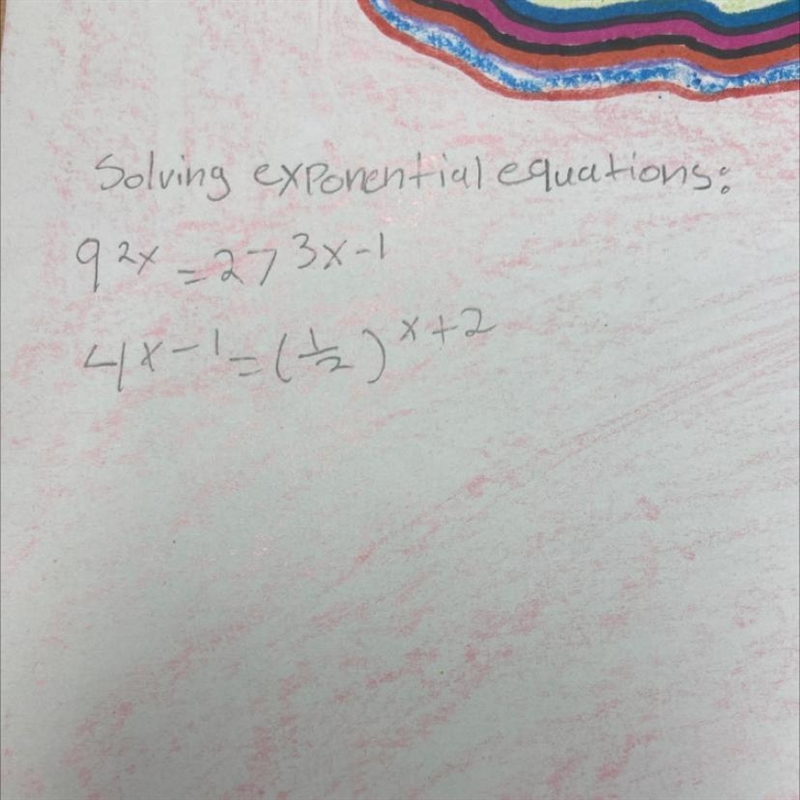 Solving exponential equations:
9^{2x} = 27^{3x-1}
4^{x-1} = (1/2)^{x+2}